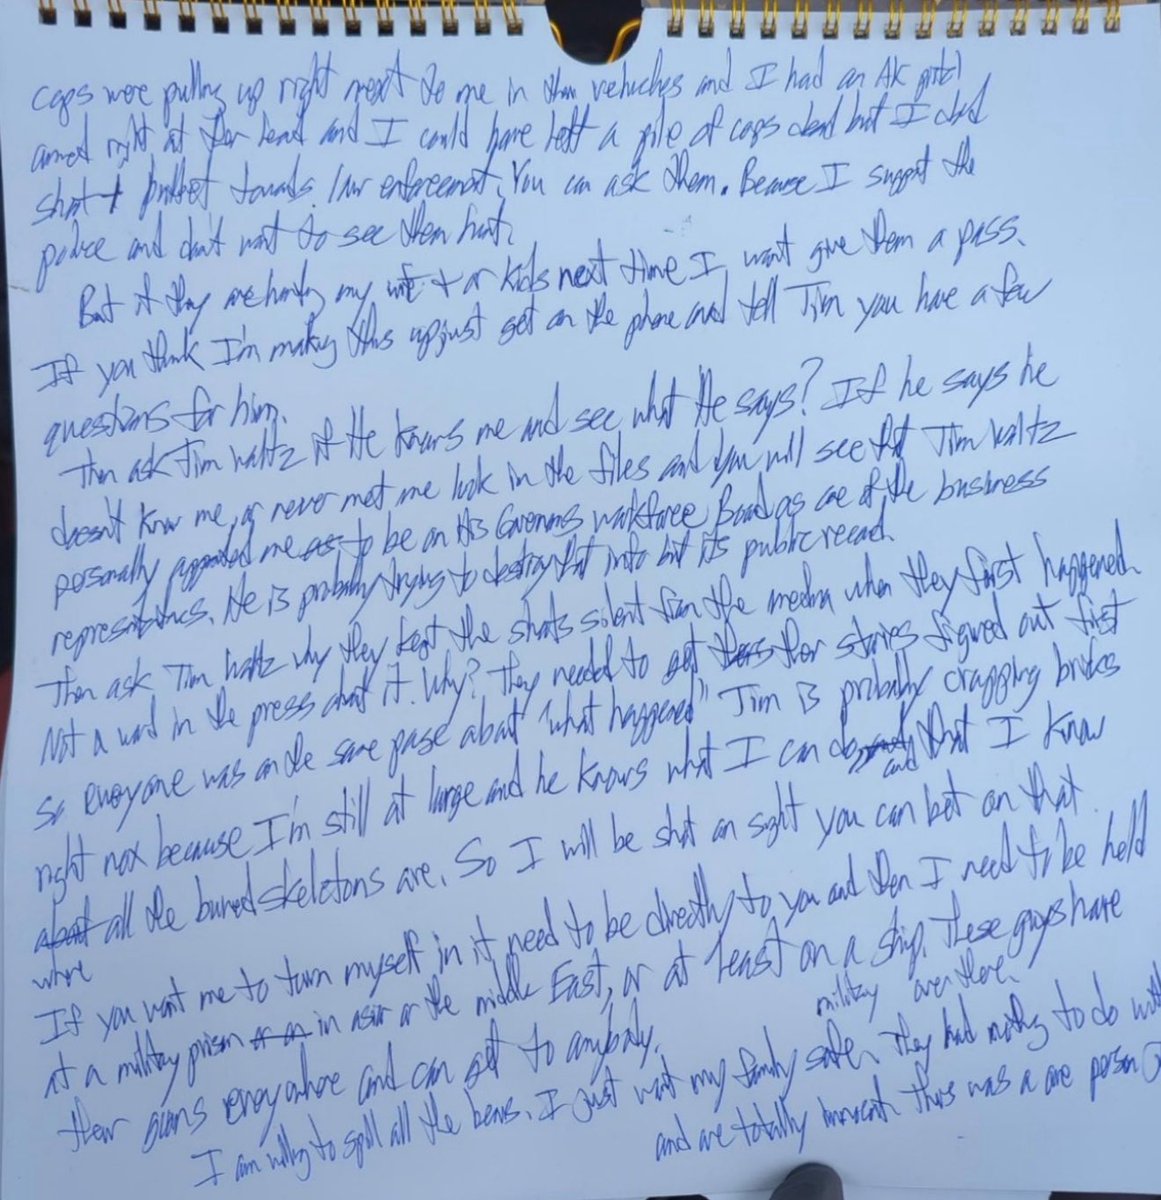 cops were pulling up right next to me in their vehicles and I had an AK pistol
aimed right at their head and I could have left a pile of cops dead but I didnt
shot 1 bullet towards law enforcement. You can ask them. Because I support the
police and don't want to see them hurt.
But if they are hunting my wife + or kids next time I wont give them a pass.
If you think I'm making this up just get on the phone and tell Tim you have a few
questions for him.
Then ask Tim Waltz if He knows me and see what He says? If he says he
doesn't know me, or never met me look in the files and you will see that Tim Waltz
personally appointed me to be on His Governors workforce Board as one of the business
representitives. He is probably trying to destroy that info but its public record.
Then ask Tim Waltz why they kept the shots silent from the media when they first happened.
Not a word in the press about it. Why? They needed to get their stories figured out first
So everyone was on the same page about "what happened" Tim is probably crapping bricks
right now because I'm still at large and he knows what I can do and that I know
where all the buried skeletons are. So I will be shot on sight you can bet on that.
If you want me to turn myself in it need to be directly to you and then I need to be held
at a military prison in asia or the middle East, or at least on a military ship. These guys have
their goons everywhere and can get to anybody. over there.
I am willing to spill all the beans. I just want my family safe. They had nothing to do with
and are totally innocent. This was a one person